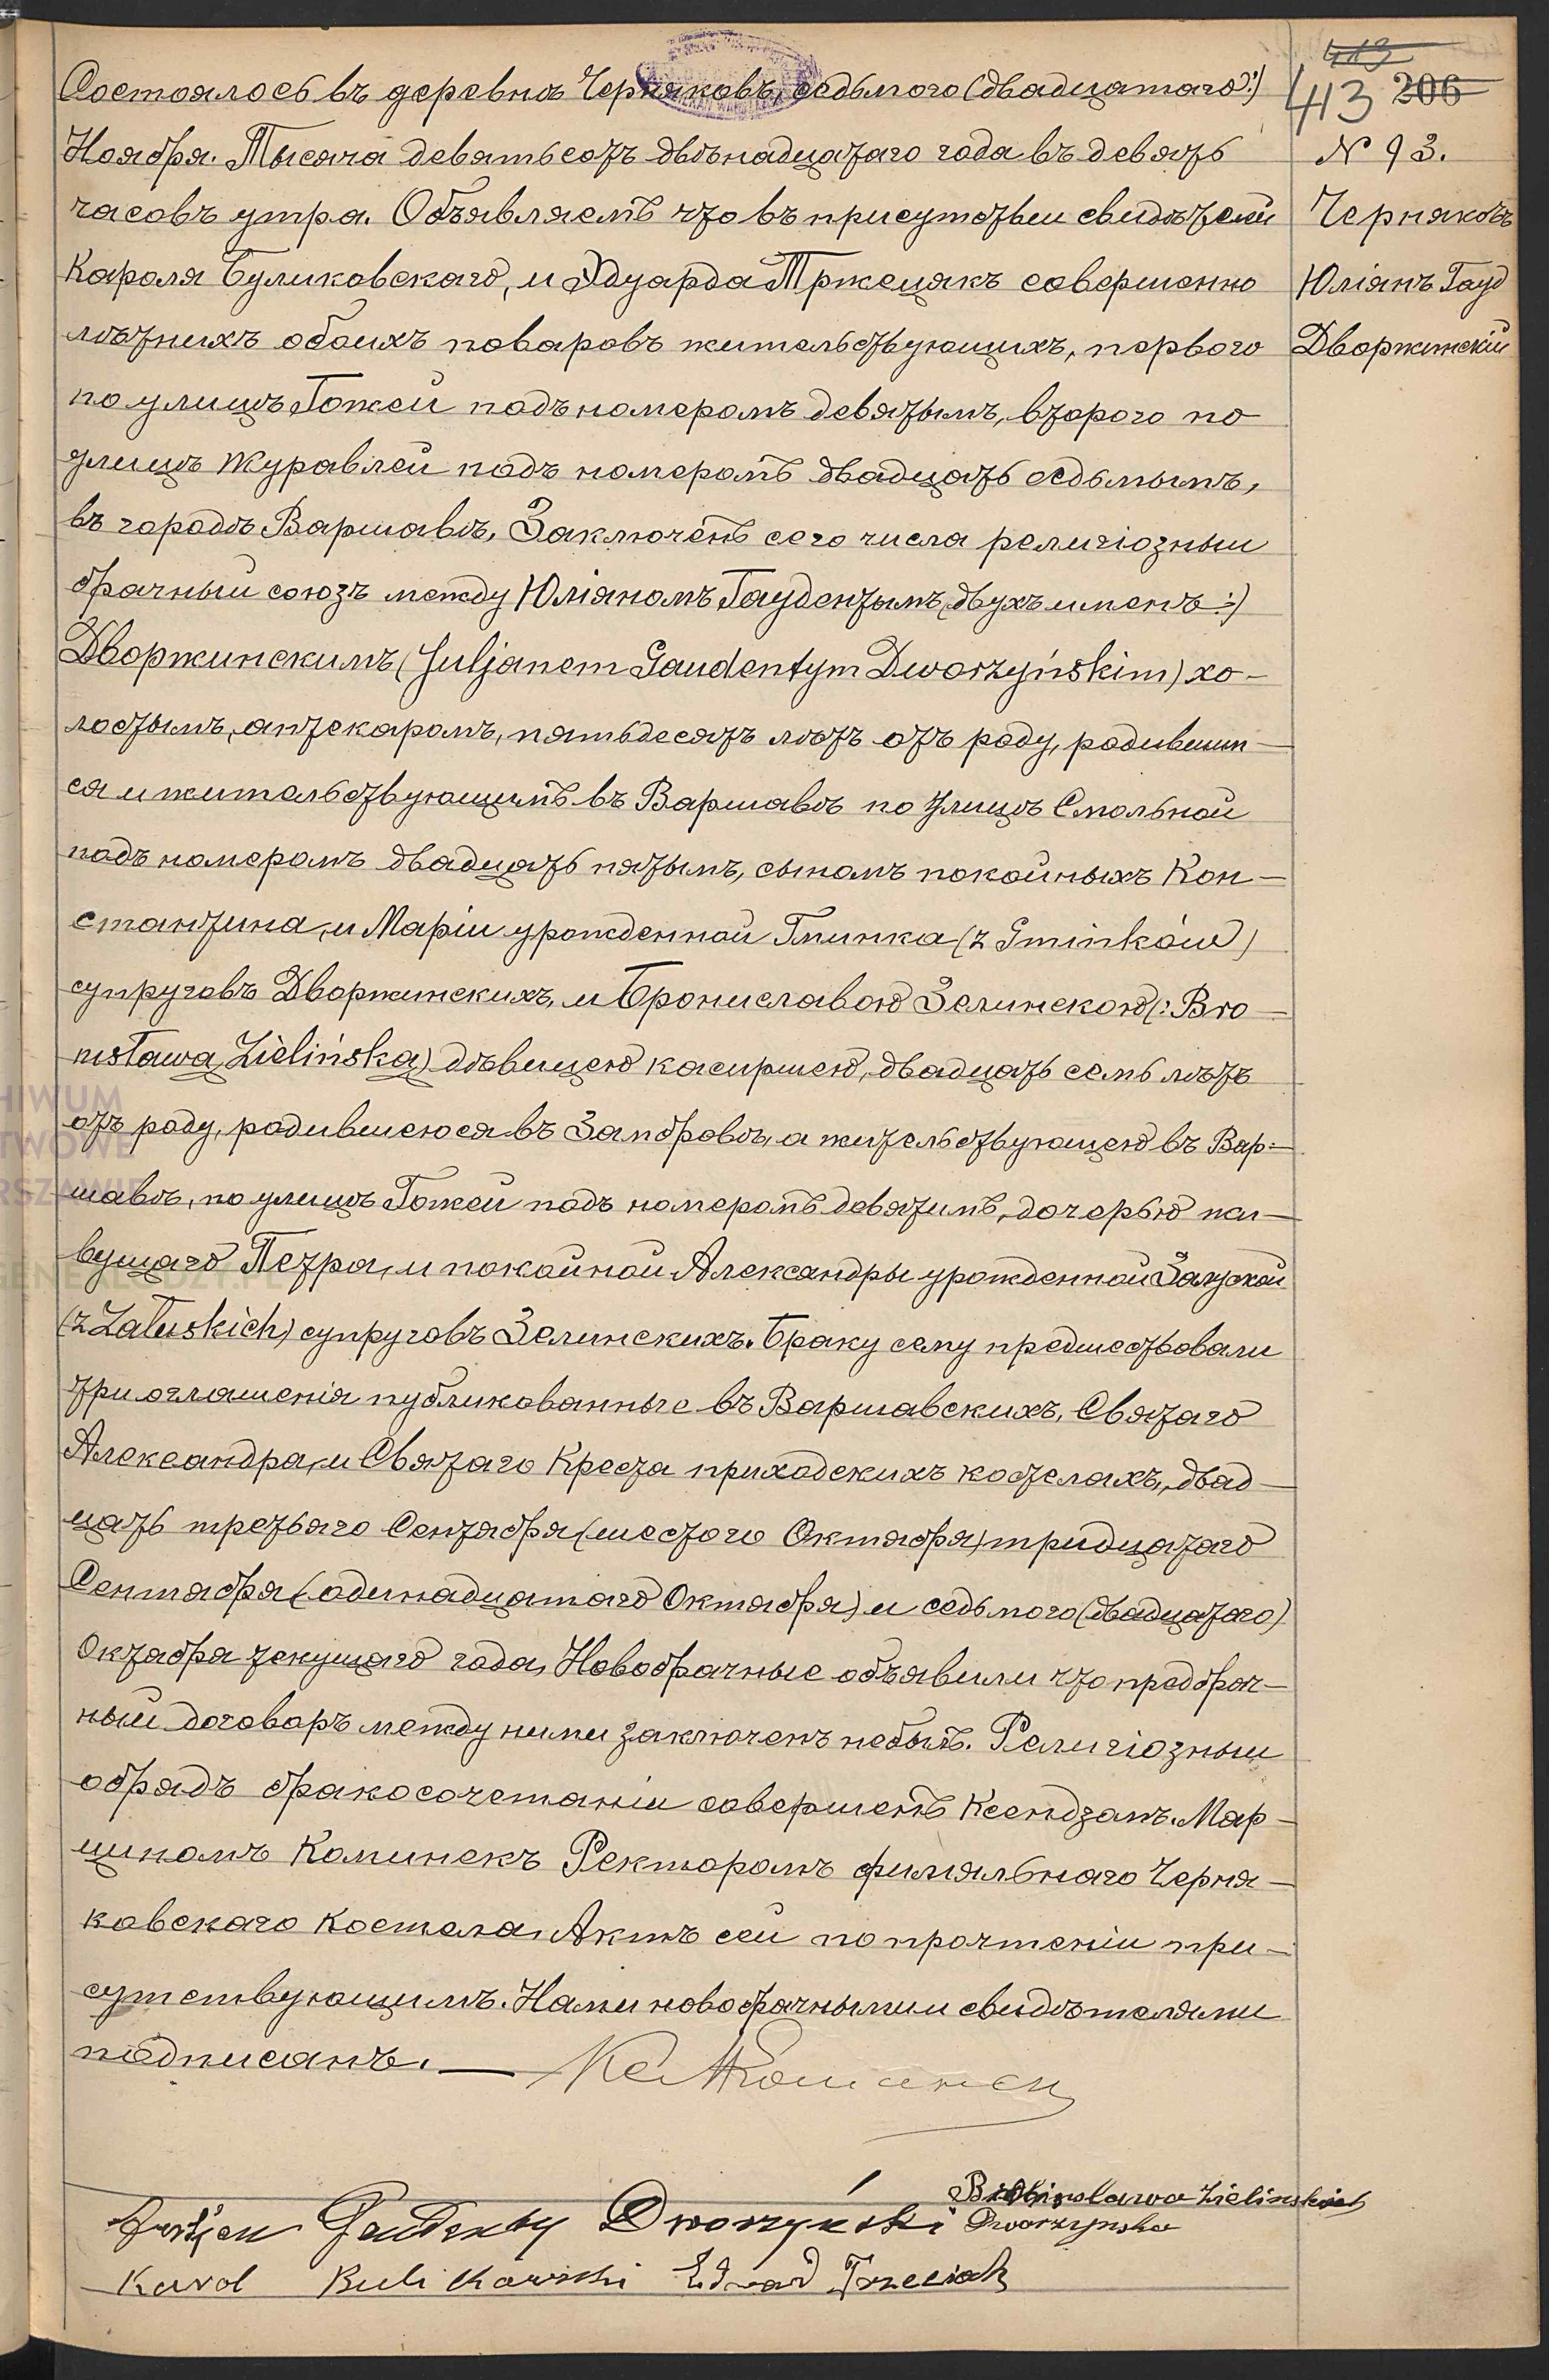 413
413 206
Состоялось въ деревнѣ Черняковѣ, седьмого (двадцатаго:)
Ноября. Тысяча девятьсотъ двѣнадцатаго года въ девять
часовъ утра. Объявляемъ что въ присутствіи свидѣтелей
Кароля Буликовскаго, и Эдуарда Тржецякъ совершенно
лѣтнихъ обоихъ поваровъ жительствующихъ, первого
по улицѣ Гожей подъ номеромъ девятымъ, второго по
улицѣ Журавлей подъ номеромъ двадцать седьмымъ,
въ городѣ Варшавѣ, Заключенъ сего числа религіозный
брачный союзъ между Юліяномъ Гаудентымъ (двухъ именъ:)
Дворжинскимъ (Juljanem Gaudentym Dworzyńskim) хо-
лостымъ, аптекаромъ, пятьдесятъ лѣтъ отъ роду, родившим-
ся и жительствующимъ въ Варшавѣ по улицѣ Смольной
подъ номеромъ двадцать пятымъ, сыномъ покойныхъ Кон-
стантина, и Маріи урожденной Гминка (z Gminków)
супруговъ Дворжинскихъ, и Брониславою Зелинскою (: Bro-
nisława Zielińska) дѣвицею касиршею, двадцать семь лѣтъ
отъ роду, родившеюся въ Замбровѣ, а жительствующею въ Вар-
шавѣ, по улицѣ Гожей подъ номеромъ девятимъ, дочерью жи-
вущаго Петра, и покойной Александры урожденной Залуской
(z Załuskich) супруговъ Зелинскихъ. Браку сему предшествовали
три оглашенія публикованные въ Варшавскихъ, Святаго
Александра, и Святаго Креста приходскихъ костелахъ, двад-
цать третьяго Сентября (шестого Октября) тридцатаго
Сентября (одинадцатаго Октября) и седьмого (двадцатаго)
Октября текущаго года, Новобрачные объявили что предбрач-
ный договоръ между ними заключенъ небылъ. Религіозный
обрядъ бракосочетаніи совершенъ Ксендзамъ. Мар-
циномъ Коминекъ Ректоромъ филяльнаго Черня-
ковскаго Костела, Актъ сей по прочтеніи при-
сутствующимъ. Нами новобрачными и свидѣтелями
подписанъ.
Кс М Коминек
N 93.
Черняковъ
Юліянъ Гауд
Дворжинскій
Juljan Gaudenty Dworzyński
Bronisława Zielinskich
Dworzynska
Karol Bulikowski Edward Trzeciak